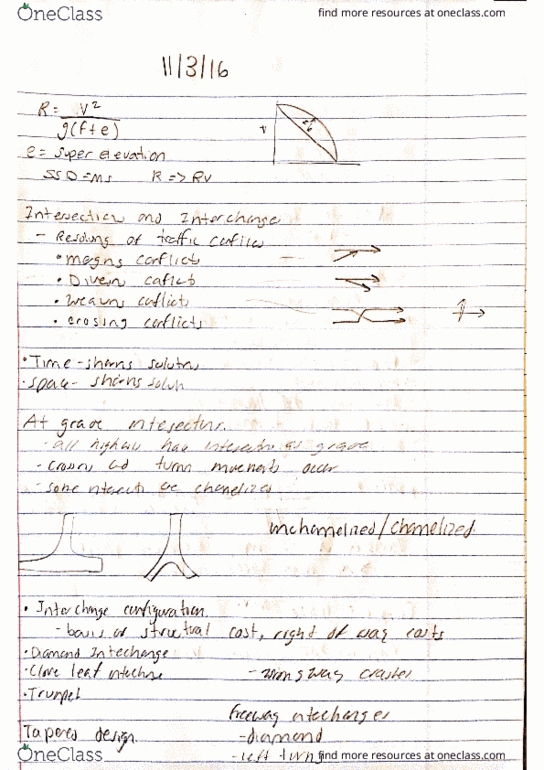 OneClass
find more resources at oneclass.com
11/3/16
R = V²
g(f+e)
e = super elevation
SSD = Ms R => Rv
Intersection and Interchange
- Resolving of traffic conflics
• merging conflicts
• Divern coflicts
• weaving coflicts
• crossing conflicts
• Time-sharing solutions
• space-sharing solutn
At grade intersections.
- all highways has intersects at grade
- crossing ad turn movements occur
- some intersects are chanelized
unchannelized/channelized
• Interchange configuration.
- basis of structual cost, right of way costs
• Diamond Interchange
• Clove leaf intechne - wrong way crashes
• Trumpet
freeway interchanges
Tapered design. - diamond
- left turns
OneClass
find more resources at oneclass.com